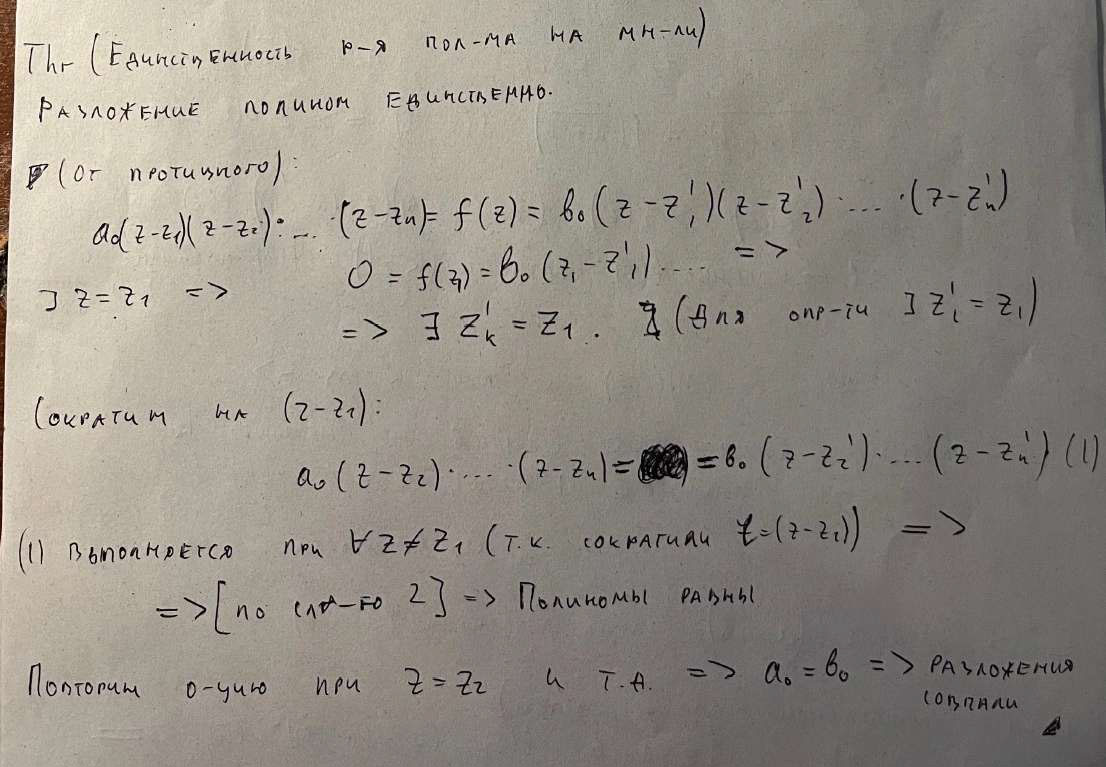 Thr (Единственность р-я пол-ма на мн-ли)
Разложение полином единственно.
(От противного):
a₀(z-z₁)(z-z₂)·...·(z-zₙ)= f(z) = b₀(z-z₁')(z-z₂')·...·(z-zₙ')
∃ z=z₁ => 0 = f(z₁) = b₀(z₁-z₁').... =>
=> ∃ zₖ' = z₁. (Для опр-ти ∃ z₁' = z₁)
Сократим на (z-z₁):
a₀(z-z₂)·...·(z-zₙ)= =b₀(z-z₂')·...(z-zₙ') (1)
(1) выполняется при ∀ z≠z₁ (т.к. сократили t=(z-z₁)) =>
=> [по сл-ю 2] => Полиномы равны
Повторим о-цию при z=z₂ и т.д. => a₀=b₀ => разложения
совпали